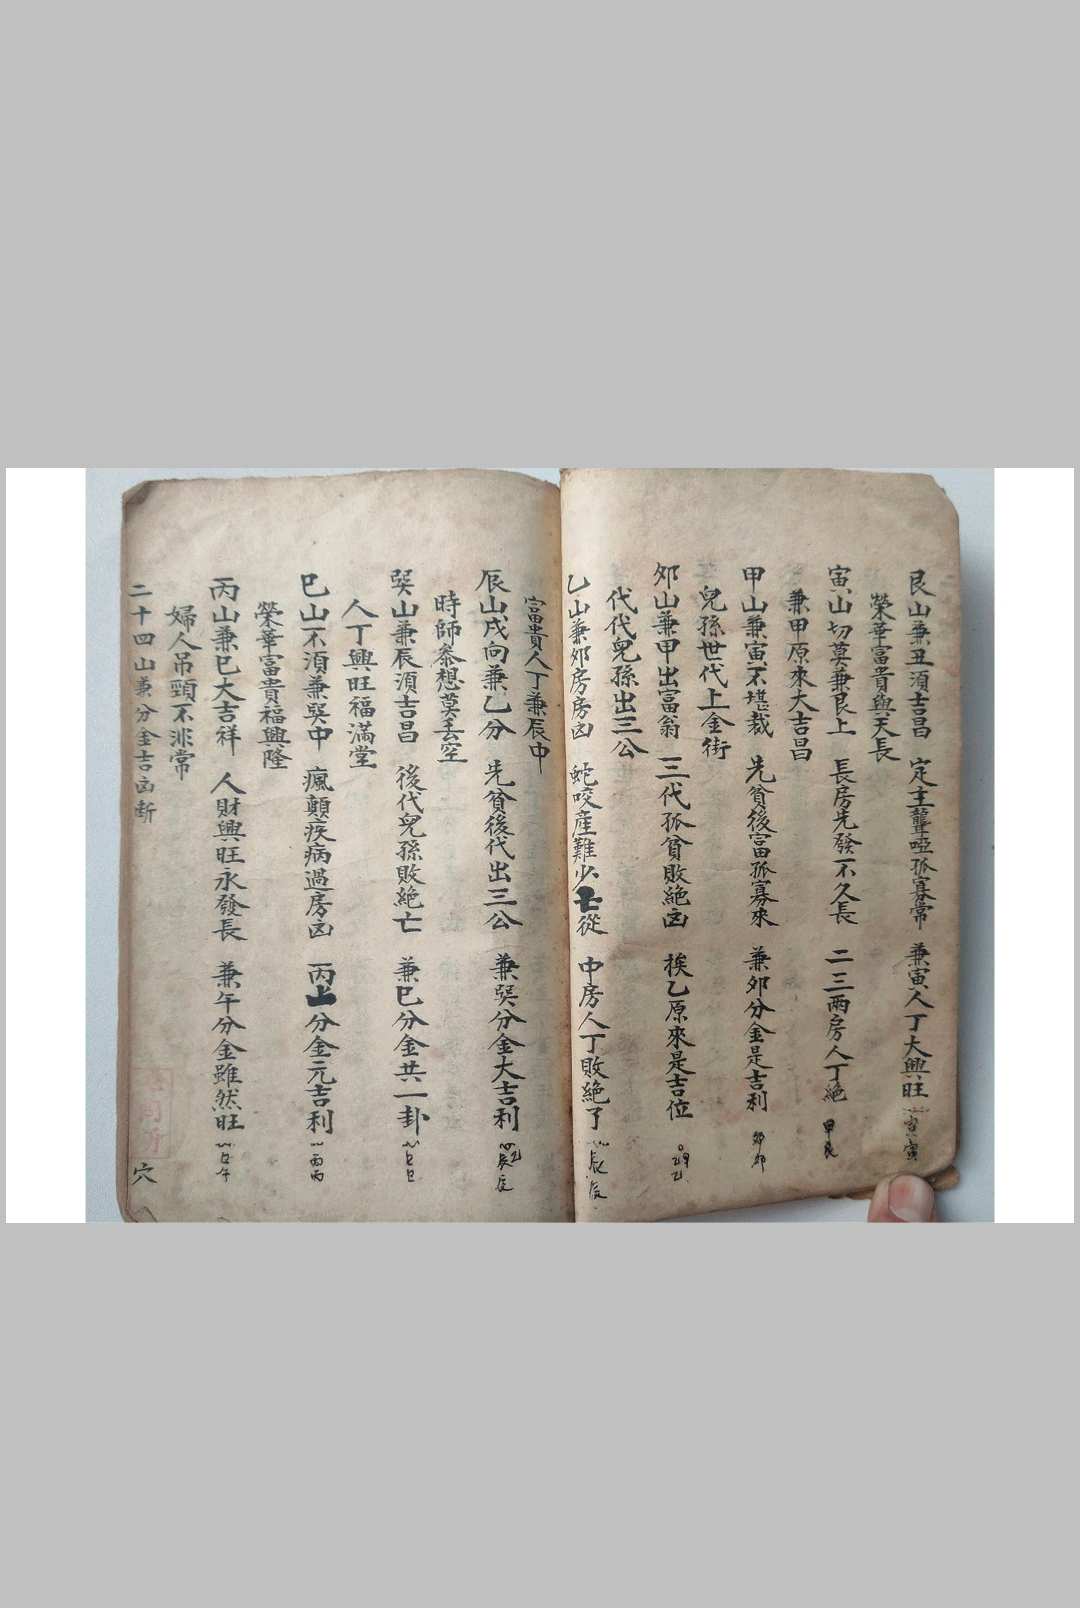 艮山兼丑須吉昌 定主聾啞孤寡常 兼寅人丁大興旺 寅寅
榮華富貴與天長
寅山切莫兼艮上 長房先發不久長 二三兩房人丁絶 甲艮
兼甲原來大吉昌
甲山兼寅不堪裁 先貧後富孤寡來 兼夘分金是吉利 夘夘
兒孫世代上金街
夘山兼甲出富翁 三代孤貧敗絶凶 挨乙原來是吉位
代代兒孫出三公
乙山兼夘房房凶 蛇咬産難少亡從 中房人丁敗絶了 辰辰
富貴人丁兼辰中
辰山戍向兼乙分 先貧後代出三公 兼巽分金大吉利
時師叅想莫丢空
巽山兼辰須吉昌 後代兒孫敗絶亡 兼巳分金共一卦 巳巳
人丁興旺福滿堂
巳山不須兼巽中 瘋顛疾病過房凶 丙上分金元吉利 丙丙
榮華富貴福興隆
丙山兼巳大吉祥 人財興旺永發長 兼午分金雖然旺 巳午
婦人吊頸不非常
二十四山兼分金吉凶斷 穴